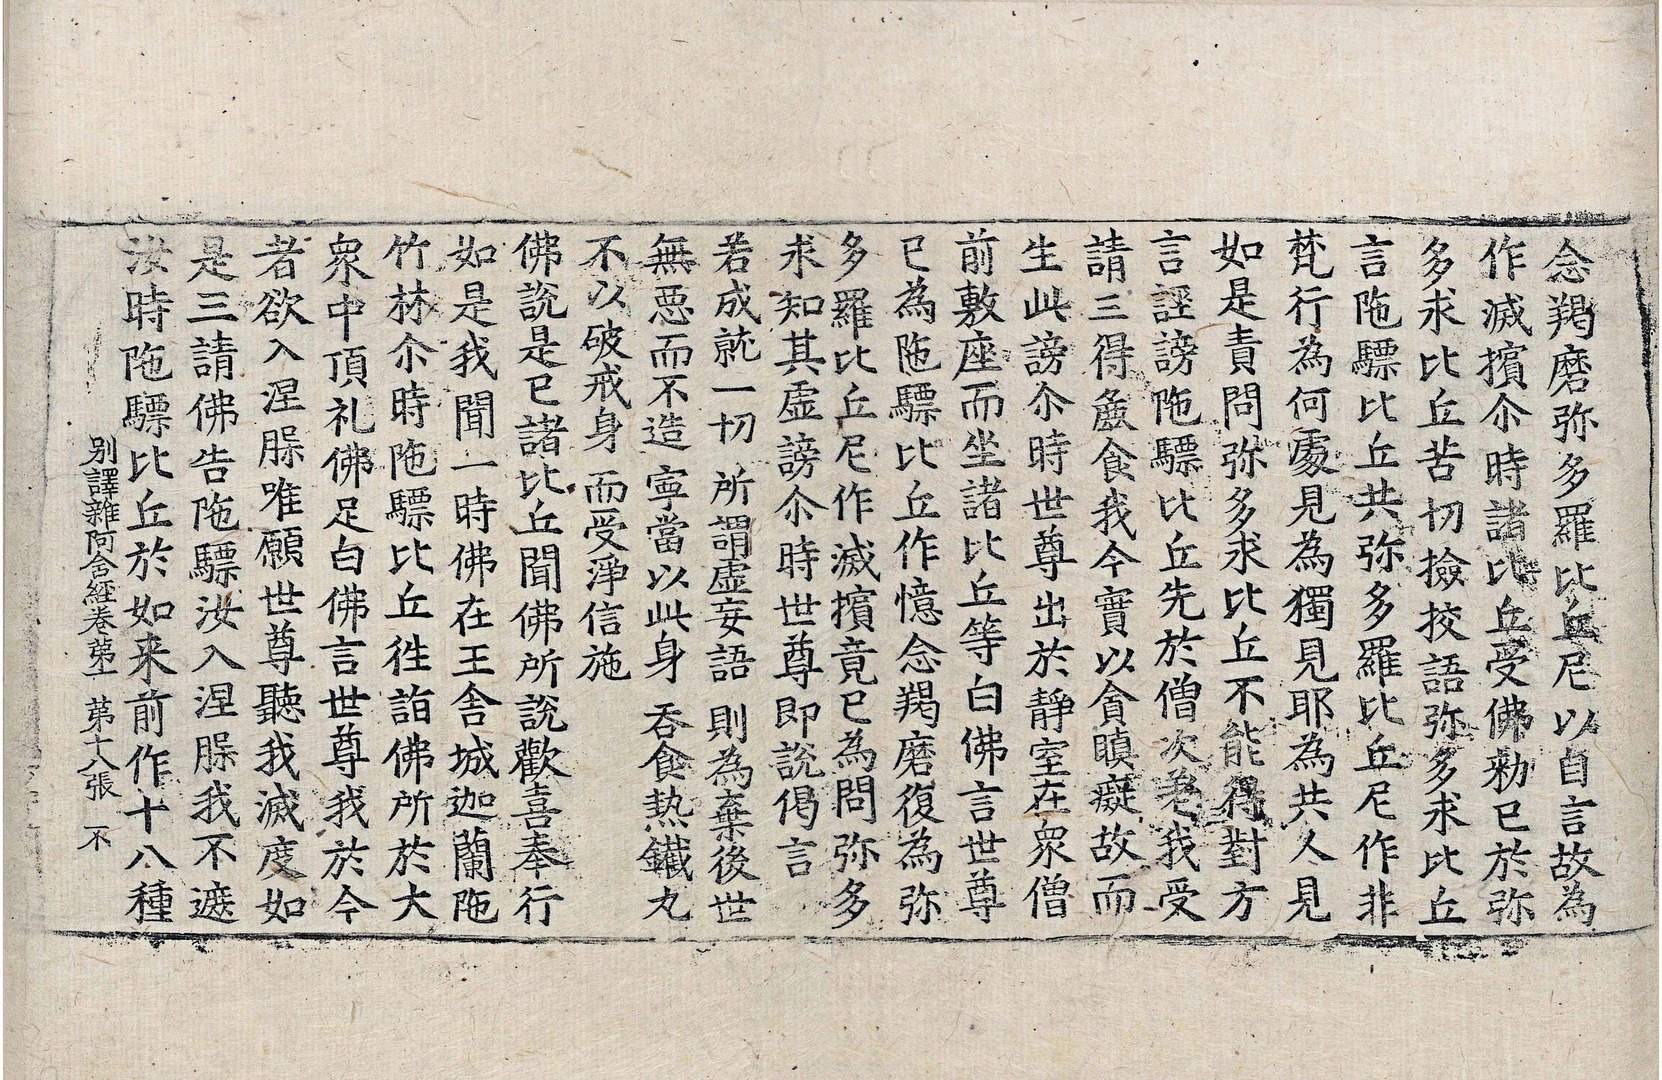 念羯磨弥多羅比丘尼以自言故為
作滅擯尒時諸比丘受佛勑已於弥
多求比丘苦切撿挍語弥多求比丘
言陁驃比丘共弥多羅比丘尼作非
梵行為何處見為獨見耶為共人見
如是責問弥多求比丘不能得對方
言誣謗陁驃比丘先於僧次差我受
請三得麁食我今實以貪瞋癡故而
生此謗尒時世尊出於靜室在衆僧
前敷座而坐諸比丘等白佛言世尊
已為陁驃比丘作憶念羯磨復為弥
多羅比丘尼作滅擯竟已為問弥多
求知其虚謗尒時世尊即說偈言
若成就一切 所謂虚妄語 則為棄後世
無惡而不造 寧當以此身 吞食热鐵丸
不以破戒身 而受淨信施
佛說是已諸比丘聞佛所說歡喜奉行
如是我聞一時佛在王舍城迦蘭陁
竹林尒時陁驃比丘徃詣佛所於大
衆中頂礼佛足白佛言世尊我於今
者欲入涅槃唯願世尊聽我滅度如
是三請佛告陁驃汝入涅槃我不遮
汝時陁驃比丘於如来前作十八種
别譯雜阿含經卷苐一 苐十八張 不